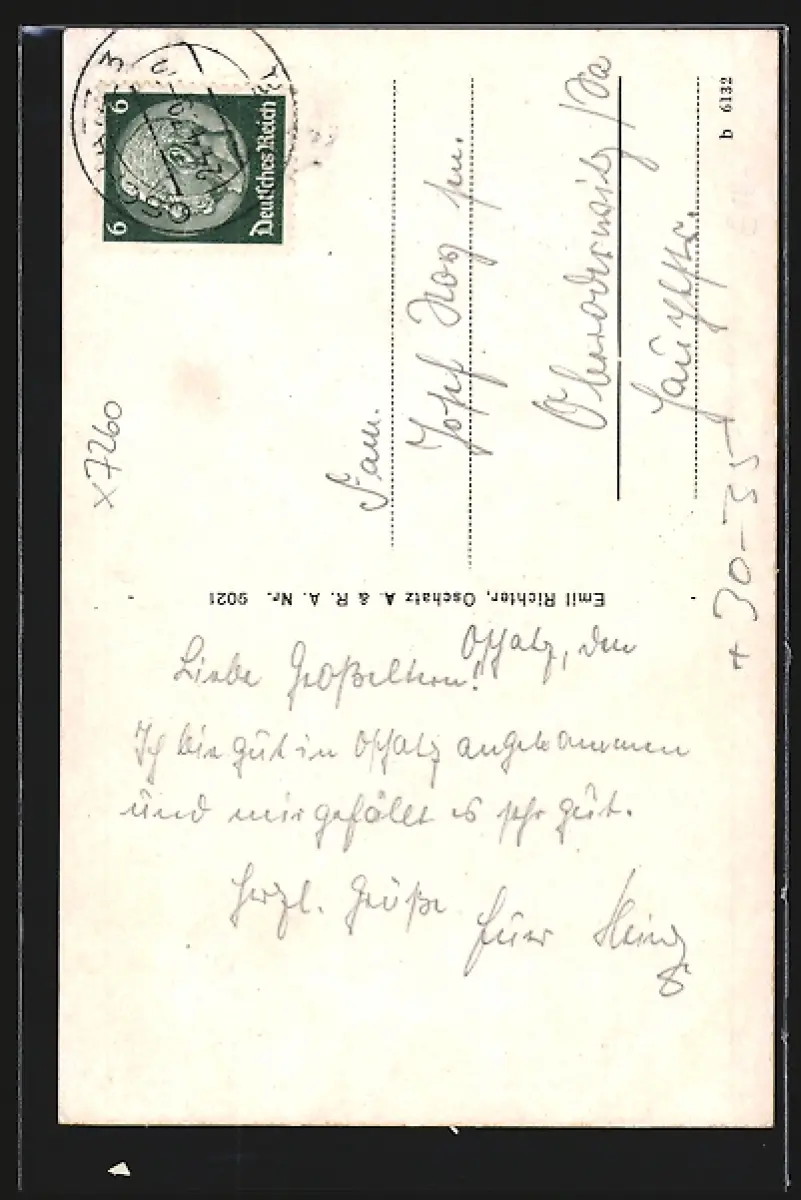 Deutsches Reich
6 6
Fam.
Josef
Oberoderwitz / Sa
Hauptstr.
b 6132
x7260
+ 30-35
Emil Richter, Oschatz A. & R. A. Nr. 9021
Oschatz, den
Liebe Großeltern!
Ich bin gut in Oschatz angekommen
und mir gefällt es sehr gut.
Herzl. Grüße
Euer Heinz